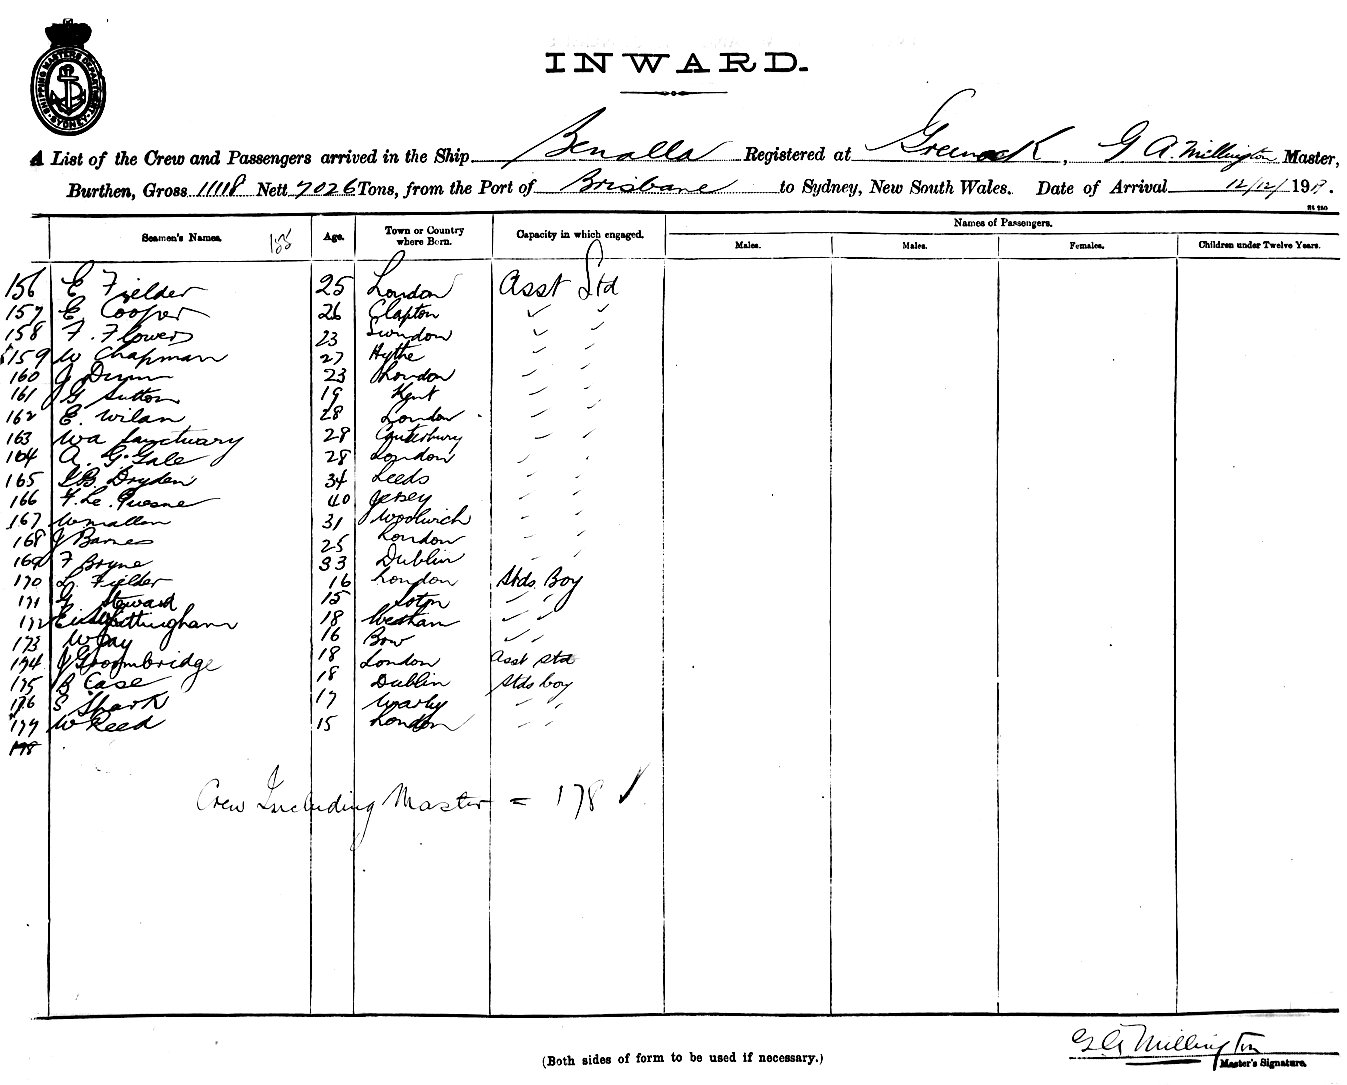 SHIPPING MASTERS DEPARTMENT SYDNEY
INWARD.
A List of the Crew and Passengers arrived in the Ship Benalla Registered at Greenock, G A. Millington Master,
Burthen, Gross 11118 Nett 7026 Tons, from the Port of Brisbane to Sydney, New South Wales. Date of Arrival 12/12/191
Names of Passengers.
Seamen's Names. 155 Age. Town or Country where Born. Capacity in which engaged. Males. Males. Females. Children under Twelve Years.
156 E Fielder 25 London Asst Std
157 E Cooper 26 Clapton ✓ ✓
158 F. Flowers 23 Swindon ✓ ✓
159 W Chapman 27 Hythe ✓ ✓
160 J 23 London ✓ ✓
161 G Sutton 19 Kent ✓ ✓
162 E. Wilan 28 London ✓ ✓
163 Wa Sanctuary 28 Canterbury ✓ ✓
164 A. G. Gale 28 London ✓ ✓
165 Dryden 34 Leeds ✓ ✓
166 F. Le. Quesne 40 Jersey ✓ ✓
167 W Mallon 31 Woolwich ✓ ✓
168 J Barnes 25 London ✓ ✓
169 F Bryne 33 Dublin ✓ ✓
170 L. Fielder 16 London Stds Boy
171 G Steward 15 ✓ ✓
172 Whittingham 18 Westham ✓ ✓
173 W Jay 16 Bow ✓ ✓
174 J Groombridge 18 London Asst Std
175 B Case 18 Dublin Stds boy
176 S Shark 17 ✓ ✓
177 W Reed 15 London ✓ ✓
178
Crew Including Master = 178 ✓
(Both sides of form to be used if necessary.)
G A Millington
Master's Signature.